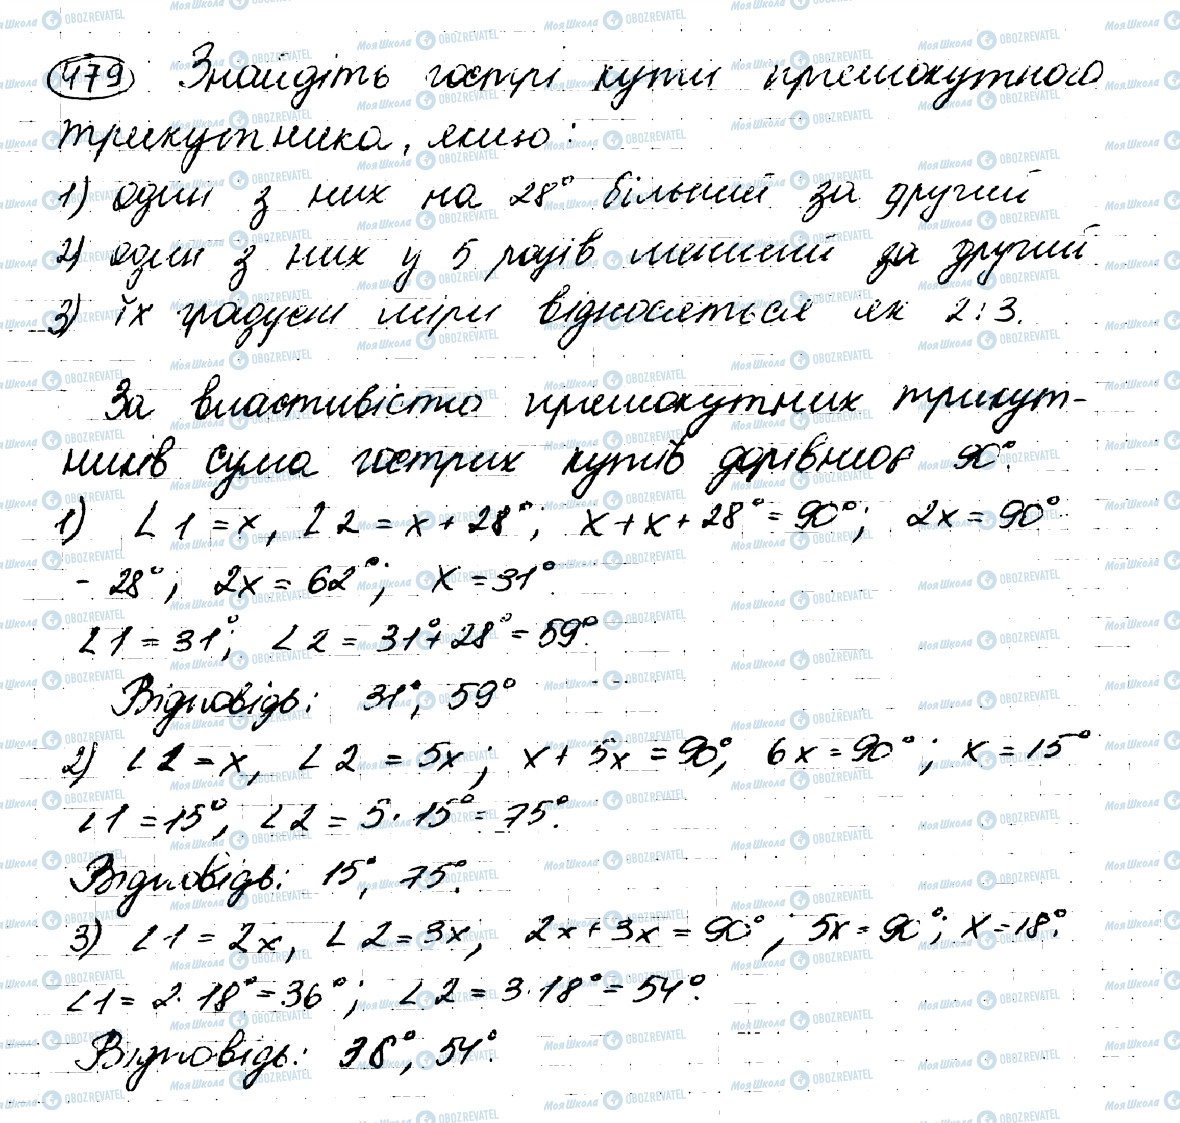 479 Знайдіть гострі кути прямокутного
трикутника, якщо:
1) один з них на 28° більший за другий
2) один з них у 5 разів менший за другий
3) їх градусні міри відносяться як 2:3.
За властивістю прямокутних трикут-
ників сума гострих кутів дорівнює 90°.
1) ∠1 = x, ∠2 = x + 28°; x + x + 28° = 90°; 2x = 90°
- 28°; 2x = 62°; x = 31°.
∠1 = 31°; ∠2 = 31° + 28° = 59°.
Відповідь: 31°, 59°
2) ∠1 = x, ∠2 = 5x; x + 5x = 90°; 6x = 90°; x = 15°
∠1 = 15°, ∠2 = 5 · 15° = 75°.
Відповідь: 15°, 75°.
3) ∠1 = 2x, ∠2 = 3x; 2x + 3x = 90°; 5x = 90°; x = 18°.
∠1 = 2 · 18° = 36°; ∠2 = 3 · 18° = 54°.
Відповідь: 38°, 54°.